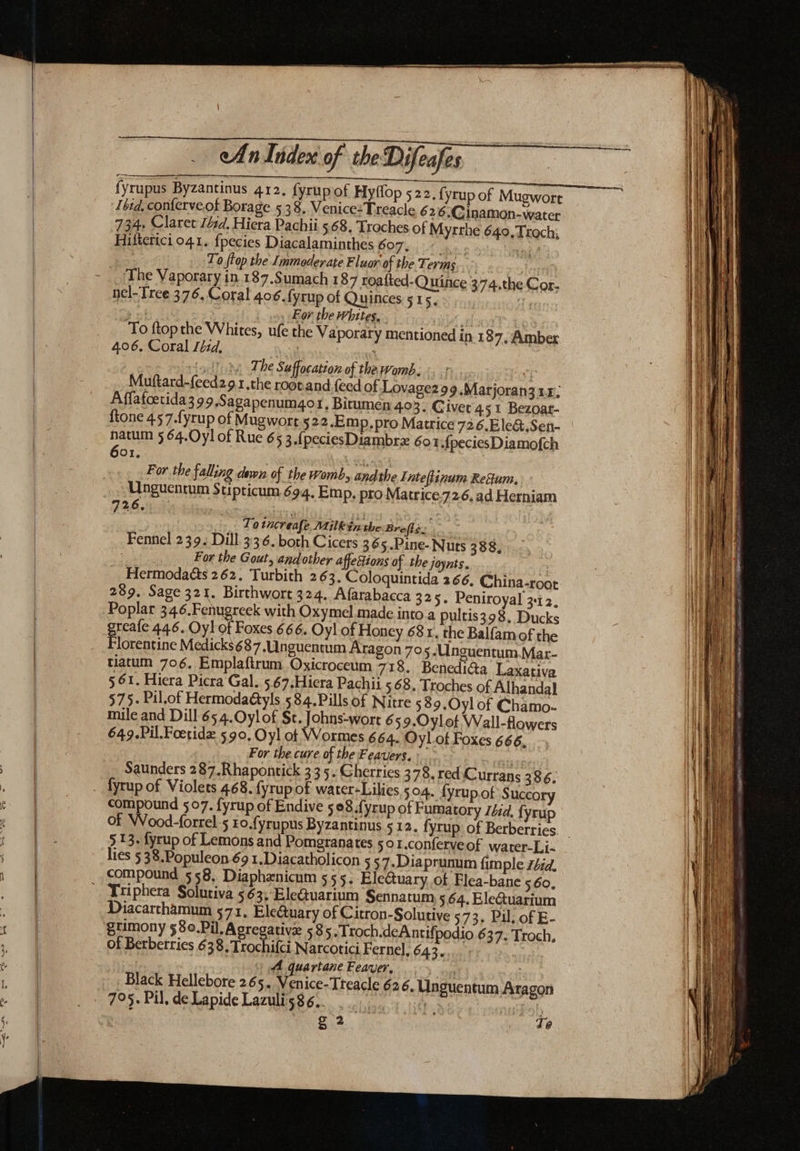 An Index of the Diſeaſes
ſyrupus Byzantinus 412. ſyrup of Hyſſop 522. ſyrup of Mugwort
Ibid. conſerve of Borage 538. Venice-Treacle 626. Cinamon-water
734. Claret Ibid. Hiera Pachii 568. Troches of Myrrhe 640. Troch.
Hiſterici 041. ſpecies Diacalaminthes 607.
To ſtop the Immoderate Fluor of the Terms.
The Vaporary in 187. Sumach 187 roaſted-Quince 374. the Cor-
nel-Tree 376. Coral 406. ſyrup of Quinces 515.
For the Whites.
To ſtop the Whites, uſe the Vaporary mentioned in 187. Amber
406. Coral Ibid.
The Suffocation of the womb.
Muſtard-ſeed 291. the root and ſeed of Lovage 299. Marjoran 311.
Aſſafœtida 399. Sagapenum 401. Bitumen 403. Civet 451 Bezoar-
ſtone 457. ſyrup of Mugwort 522. Emp. pro Matrice 726. Elect. Sen-
natum 564. Oyl of Rue 653. ſpecies Diambræ 601. ſpecies Diamoſch
601.
For the falling down of the womb, and the Inteſtinum Rectum.
Unguentum Stipticum 694. Emp. pro Matrice 726. ad Herniam
726.
To increaſe Milk in the Breſts.
Fennel 239. Dill 336. both Cicers 365. Pine-Nuts 388.
For the Gout, and other affections of the joynts.
Hermodacts 262. Turbith 263. Coloquintida 266. China-root
289. Sage 321. Birthwort 324. Aſarabacca 325. Peniroyal 312.
Poplar 346. Fenugreek with Oxymel made into a pultis 398. Ducks
greaſe 446. Oyl of Foxes 666. Oyl of Honey 681. the Balſam of the
Florentine Medicks 687. Unguentum Aragon 705. Unguentum Mar-
tiatum 706. Emplaſtrum Oxicroceum 718. Benedicta Laxativa
561. Hiera Picra Gal. 567. Hiera Pachii 568. Troches of Alhandal
575. Pil. of Hermodactyls 584. Pills of Nitre 589. Oyl of Chamo-
mile and Dill 654. Oyl of St. Johns-wort 659. Oyl of Wall-flowers
649. Pil. Fœtidæ 590. Oyl of Wormes 664. Oyl of Foxes 666.
For the cure of the Feavers.
Saunders 287. Rhapontick 335. Cherries 378. red Currans 386.
ſyrup of Violets 468. ſyrup of water-Lilies 504. ſyrup of Succory
compound 507. ſyrup of Endive 508. ſyrup of Fumatory Ibid. ſyrup
of Wood-ſorrel 510. ſyrupus Byzantinus 512. ſyrup of Berberries
513. ſyrup of Lemons and Pomgranates 501. conſerve of water-Li-
lies 538. Populeon 691. Diacatholicon 557. Diaprunum ſimple Ibid.
compound 558. Diaphænicum 555. Electuary of Flea-bane 560.
Triphera Solutiva 563. Electuarium Sennatum 564. Electuarium
Diacarthamum 571. Electuary of Citron-Solutive 573. Pil. of E-
grimony 580. Pil. Agregativæ 585. Troch. de Antiſpodio 637. Troch.
of Berberries 638. Trochiſci Narcotici Fernel. 643.
A quartane Feaver.
Black Hellebore 265. Venice-Treacle 626. Unguentum Aragon
705. Pil. de Lapide Lazuli 586.
g 2 To